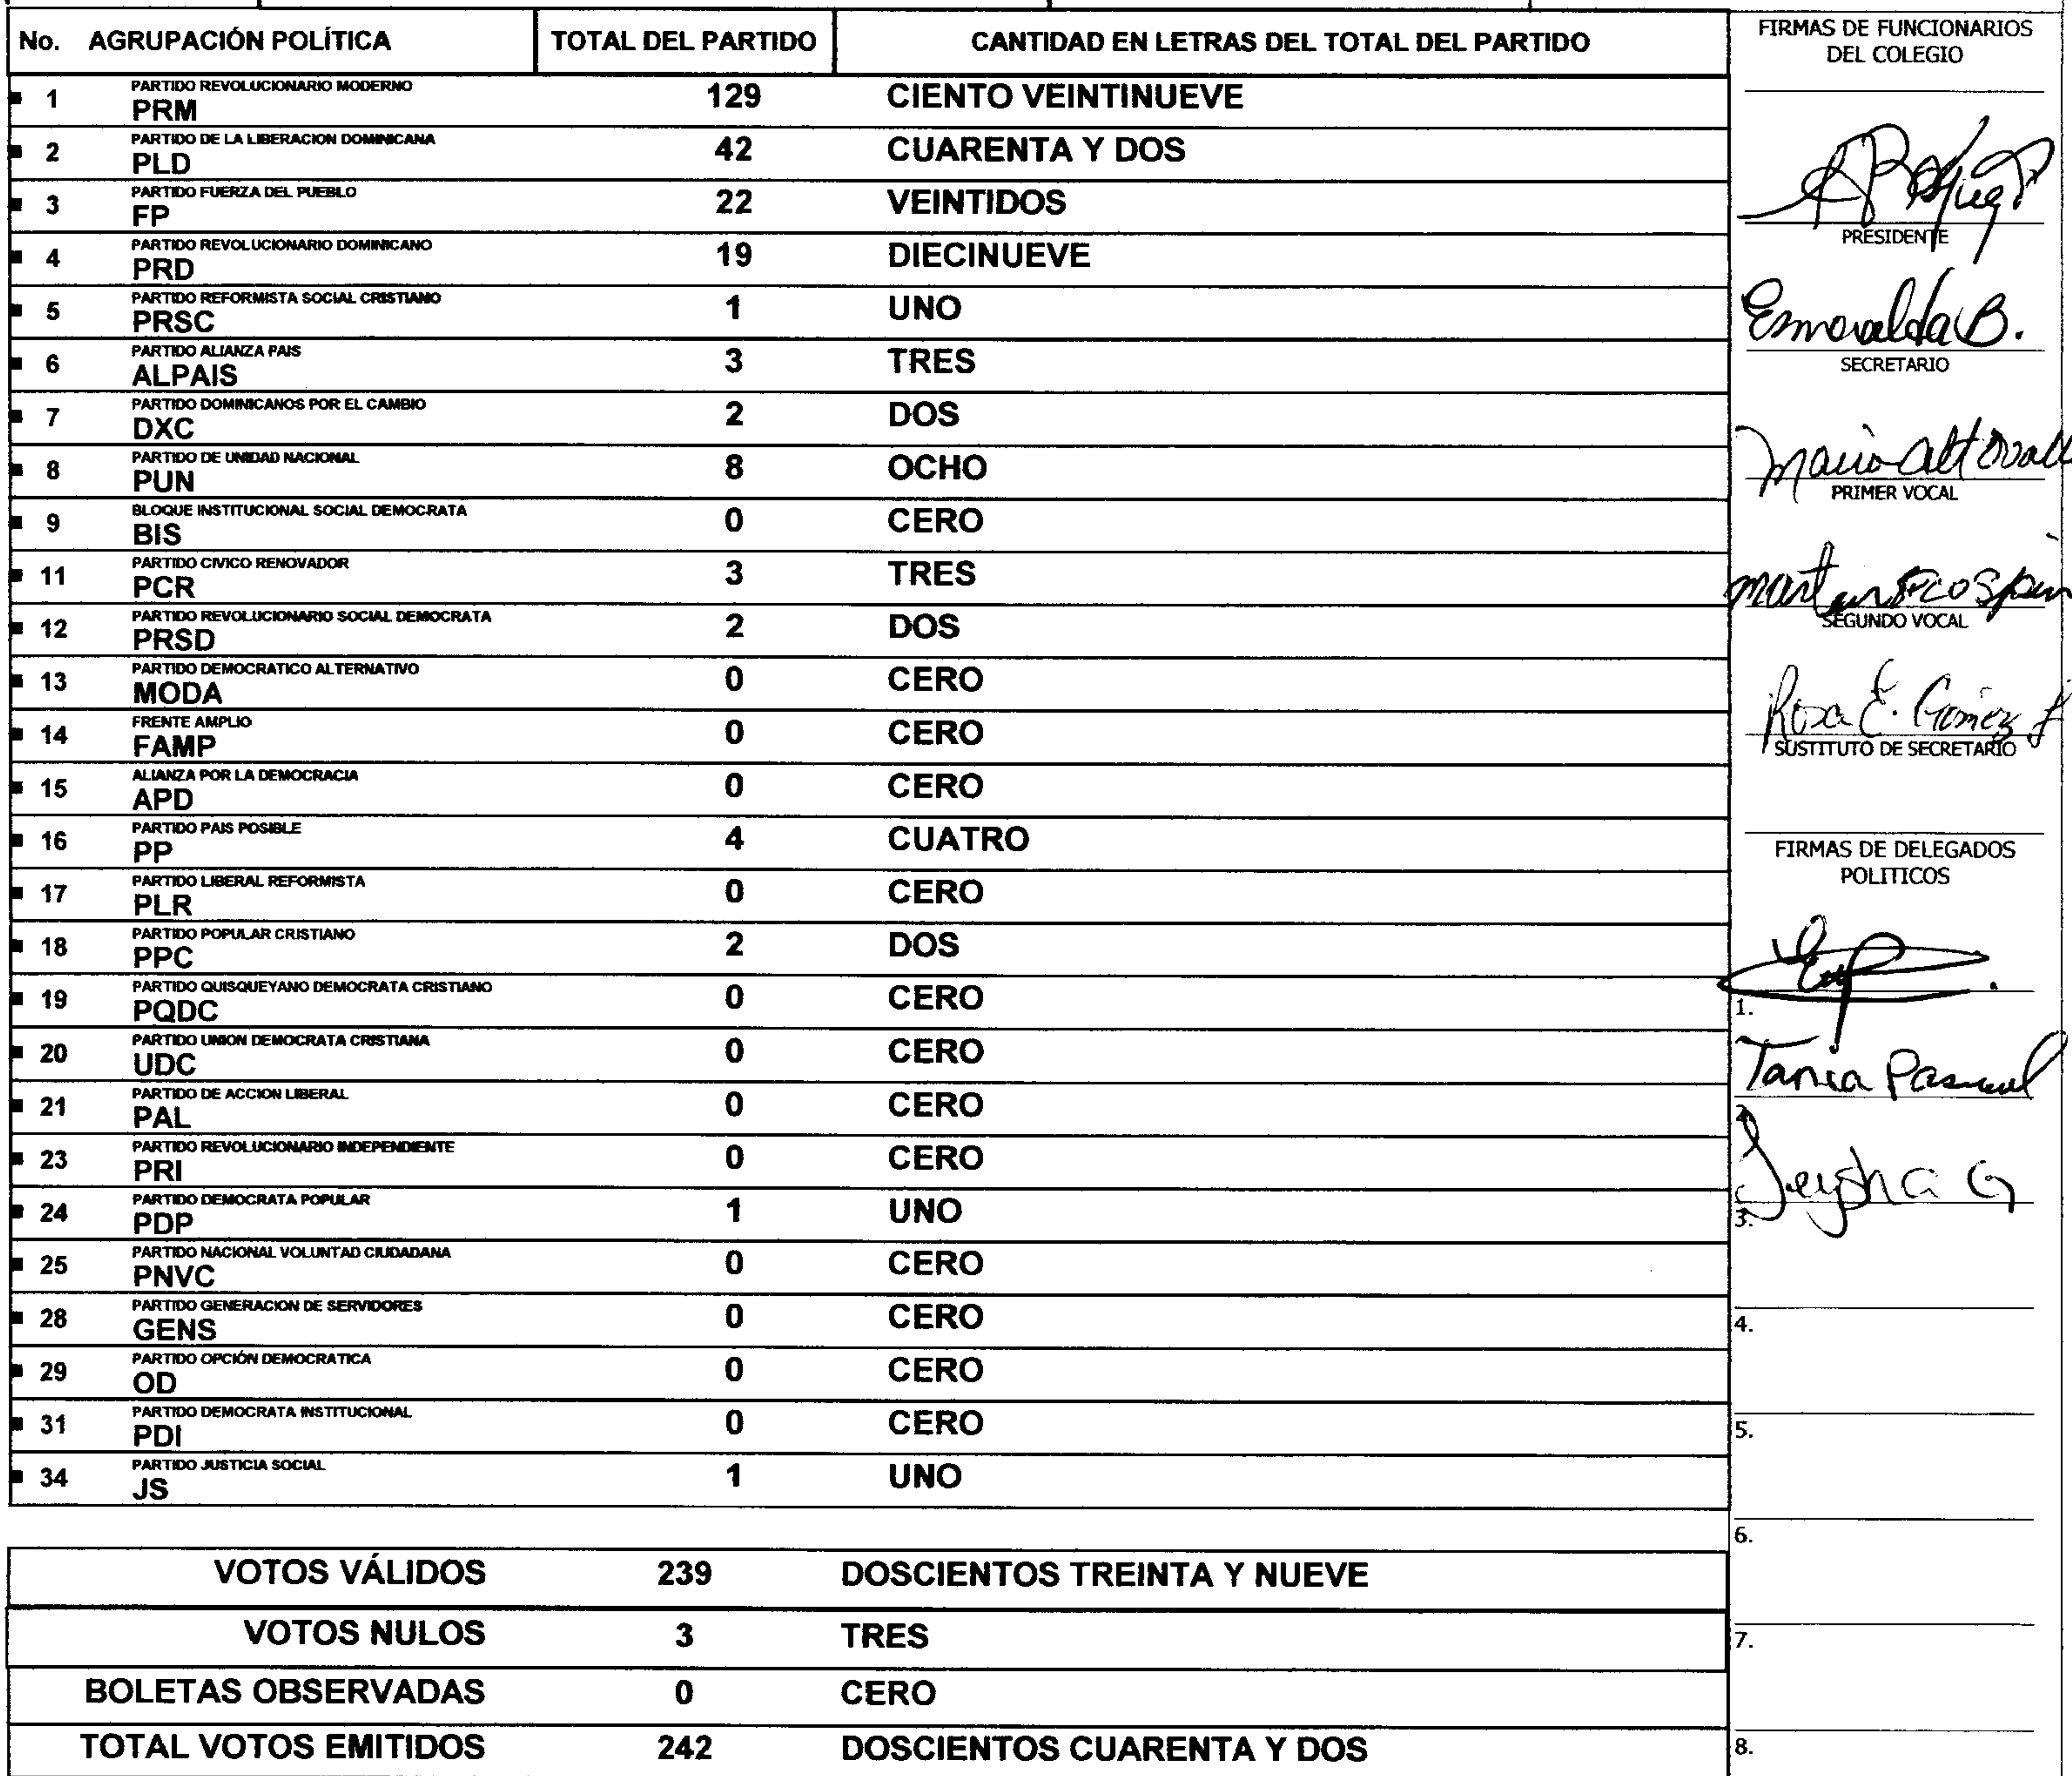 No. AGRUPACIÓN POLÍTICA TOTAL DEL PARTIDO CANTIDAD EN LETRAS DEL TOTAL DEL PARTIDO
1 PARTIDO REVOLUCIONARIO MODERNO
PRM 129 CIENTO VEINTINUEVE
2 PARTIDO DE LA LIBERACION DOMINICANA
PLD 42 CUARENTA Y DOS
3 PARTIDO FUERZA DEL PUEBLO
FP 22 VEINTIDOS
4 PARTIDO REVOLUCIONARIO DOMINICANO
PRD 19 DIECINUEVE
5 PARTIDO REFORMISTA SOCIAL CRISTIANO
PRSC 1 UNO
6 PARTIDO ALIANZA PAIS
ALPAIS 3 TRES
7 PARTIDO DOMINICANOS POR EL CAMBIO
DXC 2 DOS
8 PARTIDO DE UNIDAD NACIONAL
PUN 8 OCHO
9 BLOQUE INSTITUCIONAL SOCIAL DEMOCRATA
BIS 0 CERO
11 PARTIDO CIVICO RENOVADOR
PCR 3 TRES
12 PARTIDO REVOLUCIONARIO SOCIAL DEMOCRATA
PRSD 2 DOS
13 PARTIDO DEMOCRATICO ALTERNATIVO
MODA 0 CERO
14 FRENTE AMPLIO
FAMP 0 CERO
15 ALIANZA POR LA DEMOCRACIA
APD 0 CERO
16 PARTIDO PAIS POSIBLE
PP 4 CUATRO
17 PARTIDO LIBERAL REFORMISTA
PLR 0 CERO
18 PARTIDO POPULAR CRISTIANO
PPC 2 DOS
19 PARTIDO QUISQUEYANO DEMOCRATA CRISTIANO
PQDC 0 CERO
20 PARTIDO UNION DEMOCRATA CRISTIANA
UDC 0 CERO
21 PARTIDO DE ACCION LIBERAL
PAL 0 CERO
23 PARTIDO REVOLUCIONARIO INDEPENDIENTE
PRI 0 CERO
24 PARTIDO DEMOCRATA POPULAR
PDP 1 UNO
25 PARTIDO NACIONAL VOLUNTAD CIUDADANA
PNVC 0 CERO
28 PARTIDO GENERACION DE SERVIDORES
GENS 0 CERO
29 PARTIDO OPCIÓN DEMOCRATICA
OD 0 CERO
31 PARTIDO DEMOCRATA INSTITUCIONAL
PDI 0 CERO
34 PARTIDO JUSTICIA SOCIAL
JS 1 UNO
VOTOS VÁLIDOS 239 DOSCIENTOS TREINTA Y NUEVE
VOTOS NULOS 3 TRES
BOLETAS OBSERVADAS 0 CERO
TOTAL VOTOS EMITIDOS 242 DOSCIENTOS CUARENTA Y DOS
FIRMAS DE FUNCIONARIOS
DEL COLEGIO
PRESIDENTE
Esmeralda B.
SECRETARIO
PRIMER VOCAL
SEGUNDO VOCAL
Rosa E. Gómez
SUSTITUTO DE SECRETARIO
FIRMAS DE DELEGADOS
POLITICOS
1.
Tania Pascual
2.
3.
4.
5.
6.
7.
8.